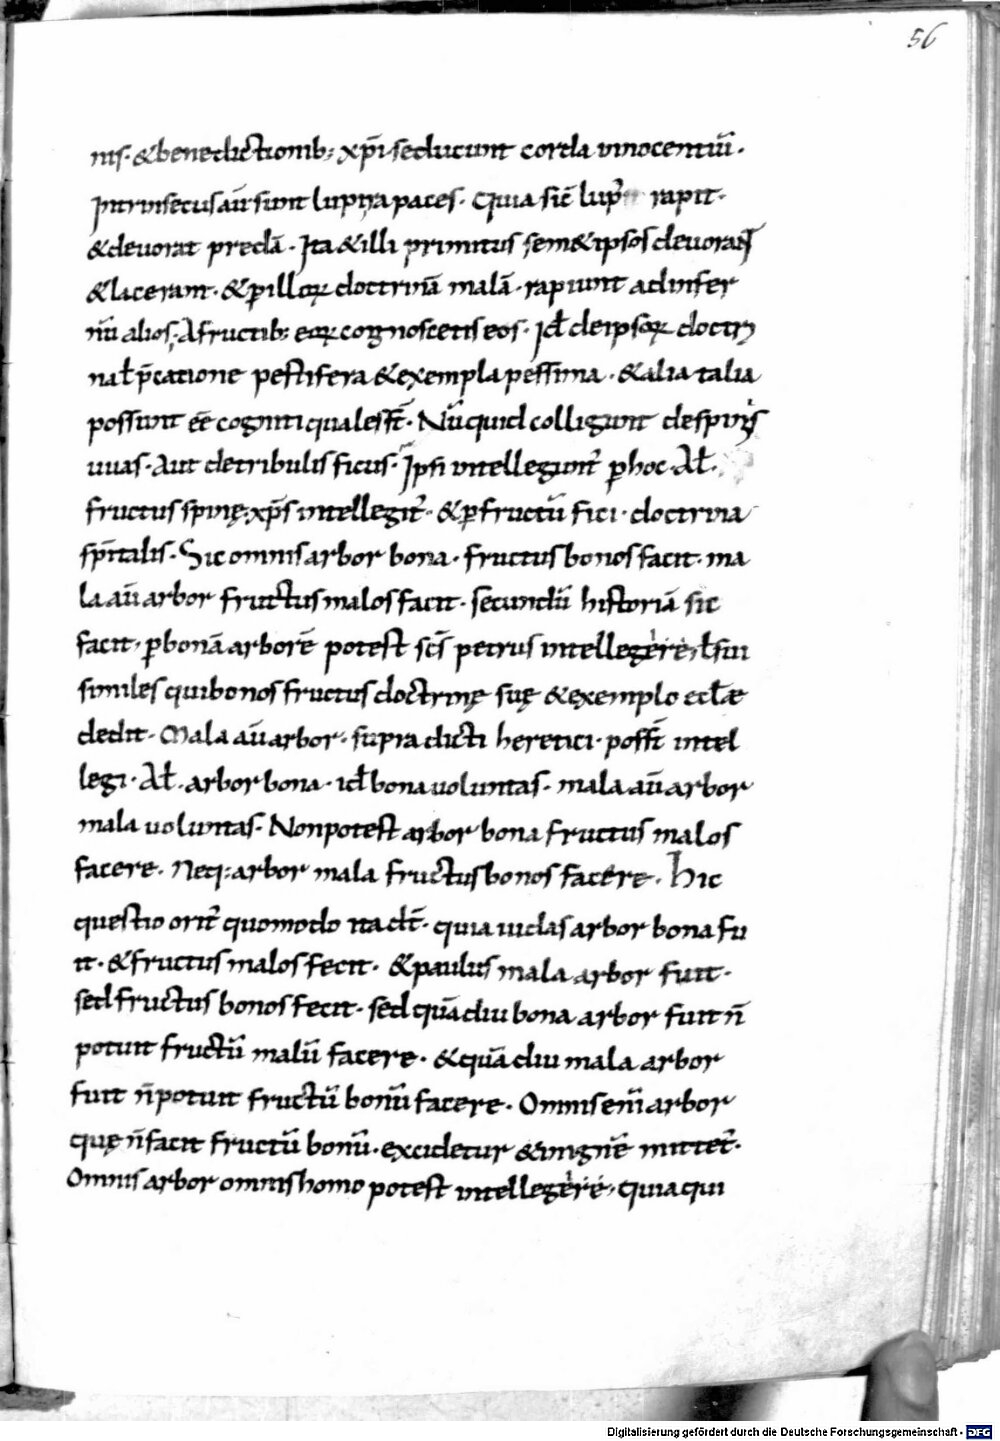 56
nis· & benedictionib; xp̄i seducunt corda innocentiū·
Intrinsecus aū sunt lupi rapaces· Quia sic̄ lup' rapit·
& deuorat predā· Ita & illi primitus sem& ipsos deuorant
& lacerant· & p illorꝝ doctrinā malā· rapiunt ad infer
nū alios; A fructib; eorꝝ cognoscetis eos· Id̄ de ipsorꝝ doctri
na ł p̄catione pestifera & exempla pessima· & alia talia
possunt eē cogniti quales s̄t· Nūquid colligunt de spinis
uuas· Aut de tribulis ficus· Ipsi intellegunt' p hoc· Ał·
fructus spinę· xp̄s intellegit'· & p fructū fici· doctrina
sp̄italis· Sic omnis arbor bona· fructus bonos facit· ma
la aū arbor fructus malos facit· secundū historiā sic
facit, p bonā arborē potest sc̄s petrus intellegere, ł sui
similes qui bonos fructus doctrinę suę & exemplo eccłæ
dedit· Mala aū arbor· supra dicti heretici· possn̄t intel
legi· Ał· arbor bona· id̄ bona uoluntas· mala aū arbor
mala uoluntas· Non potest arbor bona fructus malos
facere· Neq; arbor mala fructus bonos facere· Hic
questio orit' quomodo ita dt̄· quia iudas arbor bona fu
it· & fructus malos fecit· & paulus mala arbor fuit·
sed fructus bonos fecit· sed quādiu bona arbor fuit n̄
potuit fructū malū facere· & quādiu mala arbor
fuit n̄ potuit fructū bonū facere· Omnis enī arbor
quę n̄ facit fructū bonū· excidetur & in ignē mittet'·
Omnis arbor omnis homo potest intellegere, quia qui
Digitalisierung gefördert durch die Deutsche Forschungsgemeinschaft - DFG